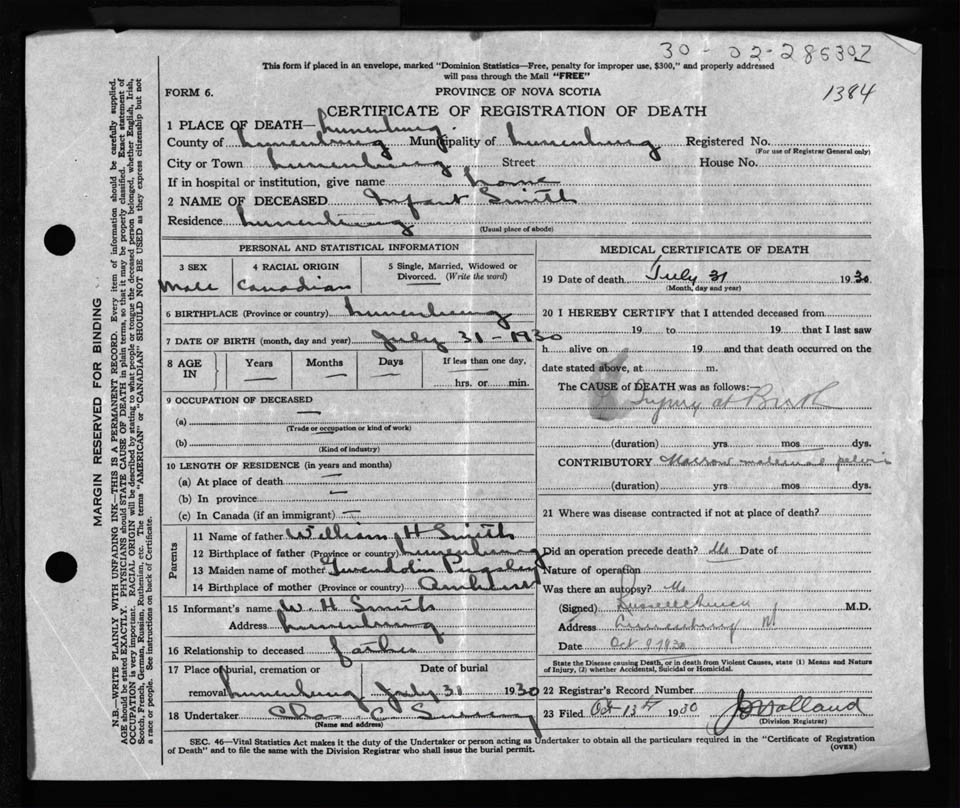 30-02-286302
This form if placed in an envelope, marked "Dominion Statistics—Free, penalty for improper use, $300," and properly addressed
will pass through the Mail "FREE"
1384
FORM 6.
PROVINCE OF NOVA SCOTIA
CERTIFICATE OF REGISTRATION OF DEATH
1 PLACE OF DEATH— Lunenburg.
County of Lunenburg Municipality of Lunenburg Registered No.
(For use of Registrar General only)
City or Town Lunenburg Street House No.
If in hospital or institution, give name home
2 NAME OF DECEASED Infant Smith
Residence Lunenburg
(Usual place of abode)
PERSONAL AND STATISTICAL INFORMATION
3 SEX 4 RACIAL ORIGIN 5 Single, Married, Widowed or
Divorced. (Write the word)
Male Canadian
6 BIRTHPLACE (Province or country) Lunenburg
7 DATE OF BIRTH (month, day and year) July 31-1930
8 AGE IN Years Months Days If less than one day,
hrs. or min.
9 OCCUPATION OF DECEASED
(a)
(Trade or occupation or kind of work)
(b)
(Kind of industry)
10 LENGTH OF RESIDENCE (in years and months)
(a) At place of death
(b) In province
(c) In Canada (if an immigrant)
Parents
11 Name of father William H Smith
12 Birthplace of father (Province or country) Lunenburg
13 Maiden name of mother Gwendolin Pugsley
14 Birthplace of mother (Province or country) Amherst
15 Informant's name W. H Smith
Address Lunenburg
16 Relationship to deceased father
17 Place of burial, cremation or Date of burial
removal Lunenburg July 31 1930
18 Undertaker Chas C
(Name and address)
MEDICAL CERTIFICATE OF DEATH
19 Date of death July 31 1930
(Month, day and year)
20 I HEREBY CERTIFY that I attended deceased from
19 to 19 that I last saw
h alive on 19 and that death occurred on the
date stated above, at m.
The CAUSE of DEATH was as follows:—
Injury at Birth
(duration) yrs mos dys.
CONTRIBUTORY Narrow maternal pelvis
(duration) yrs mos dys.
21 Where was disease contracted if not at place of death?
Did an operation precede death? No Date of
Nature of operation
Was there an autopsy? No
(Signed) Russell M.D.
Address Lunenburg NS
Date Oct 9 1930
State the Disease causing Death, or in death from Violent Causes, state (1) Means and Nature
of Injury, (2) whether Accidental, Suicidal or Homicidal.
22 Registrar's Record Number
23 Filed Oct 13th 1930 Holland
(Division Registrar)
SEC. 46—Vital Statistics Act makes it the duty of the Undertaker or person acting as Undertaker to obtain all the particulars required in the "Certificate of Registration
of Death" and to file the same with the Division Registrar who shall issue the burial permit.
(OVER)
MARGIN RESERVED FOR BINDING
N.B.—WRITE PLAINLY WITH UNFADING INK—THIS IS A PERMANENT RECORD. Every item of information should be carefully supplied.
AGE should be stated EXACTLY. PHYSICIANS should STATE CAUSE OF DEATH in plain terms, so that it may be properly classified. Exact statement of
OCCUPATION is very important. RACIAL ORIGIN will be described by stating to what people or tongue the deceased person belonged, whether English, Irish,
Scotch, French, German, Russian, Ruthenian, etc. The terms "AMERICAN" or "CANADIAN" SHOULD NOT BE USED as they express citizenship but not
a race or people. See instructions on back of Certificate.